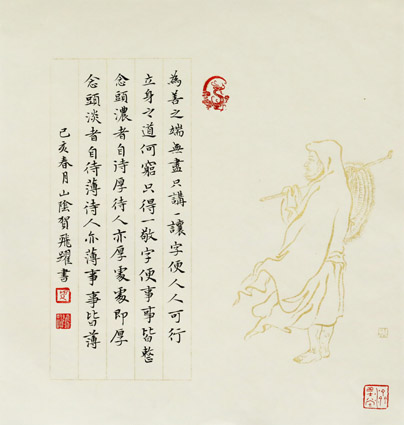 為善之端無盡只講一讓字便人人可行
立身之道何窮只得一敬字便事事皆整
念頭濃者自待厚待人亦厚處處即厚
念頭淡者自待薄待人亦薄事事皆薄
己亥春月山陰賀飛躍書